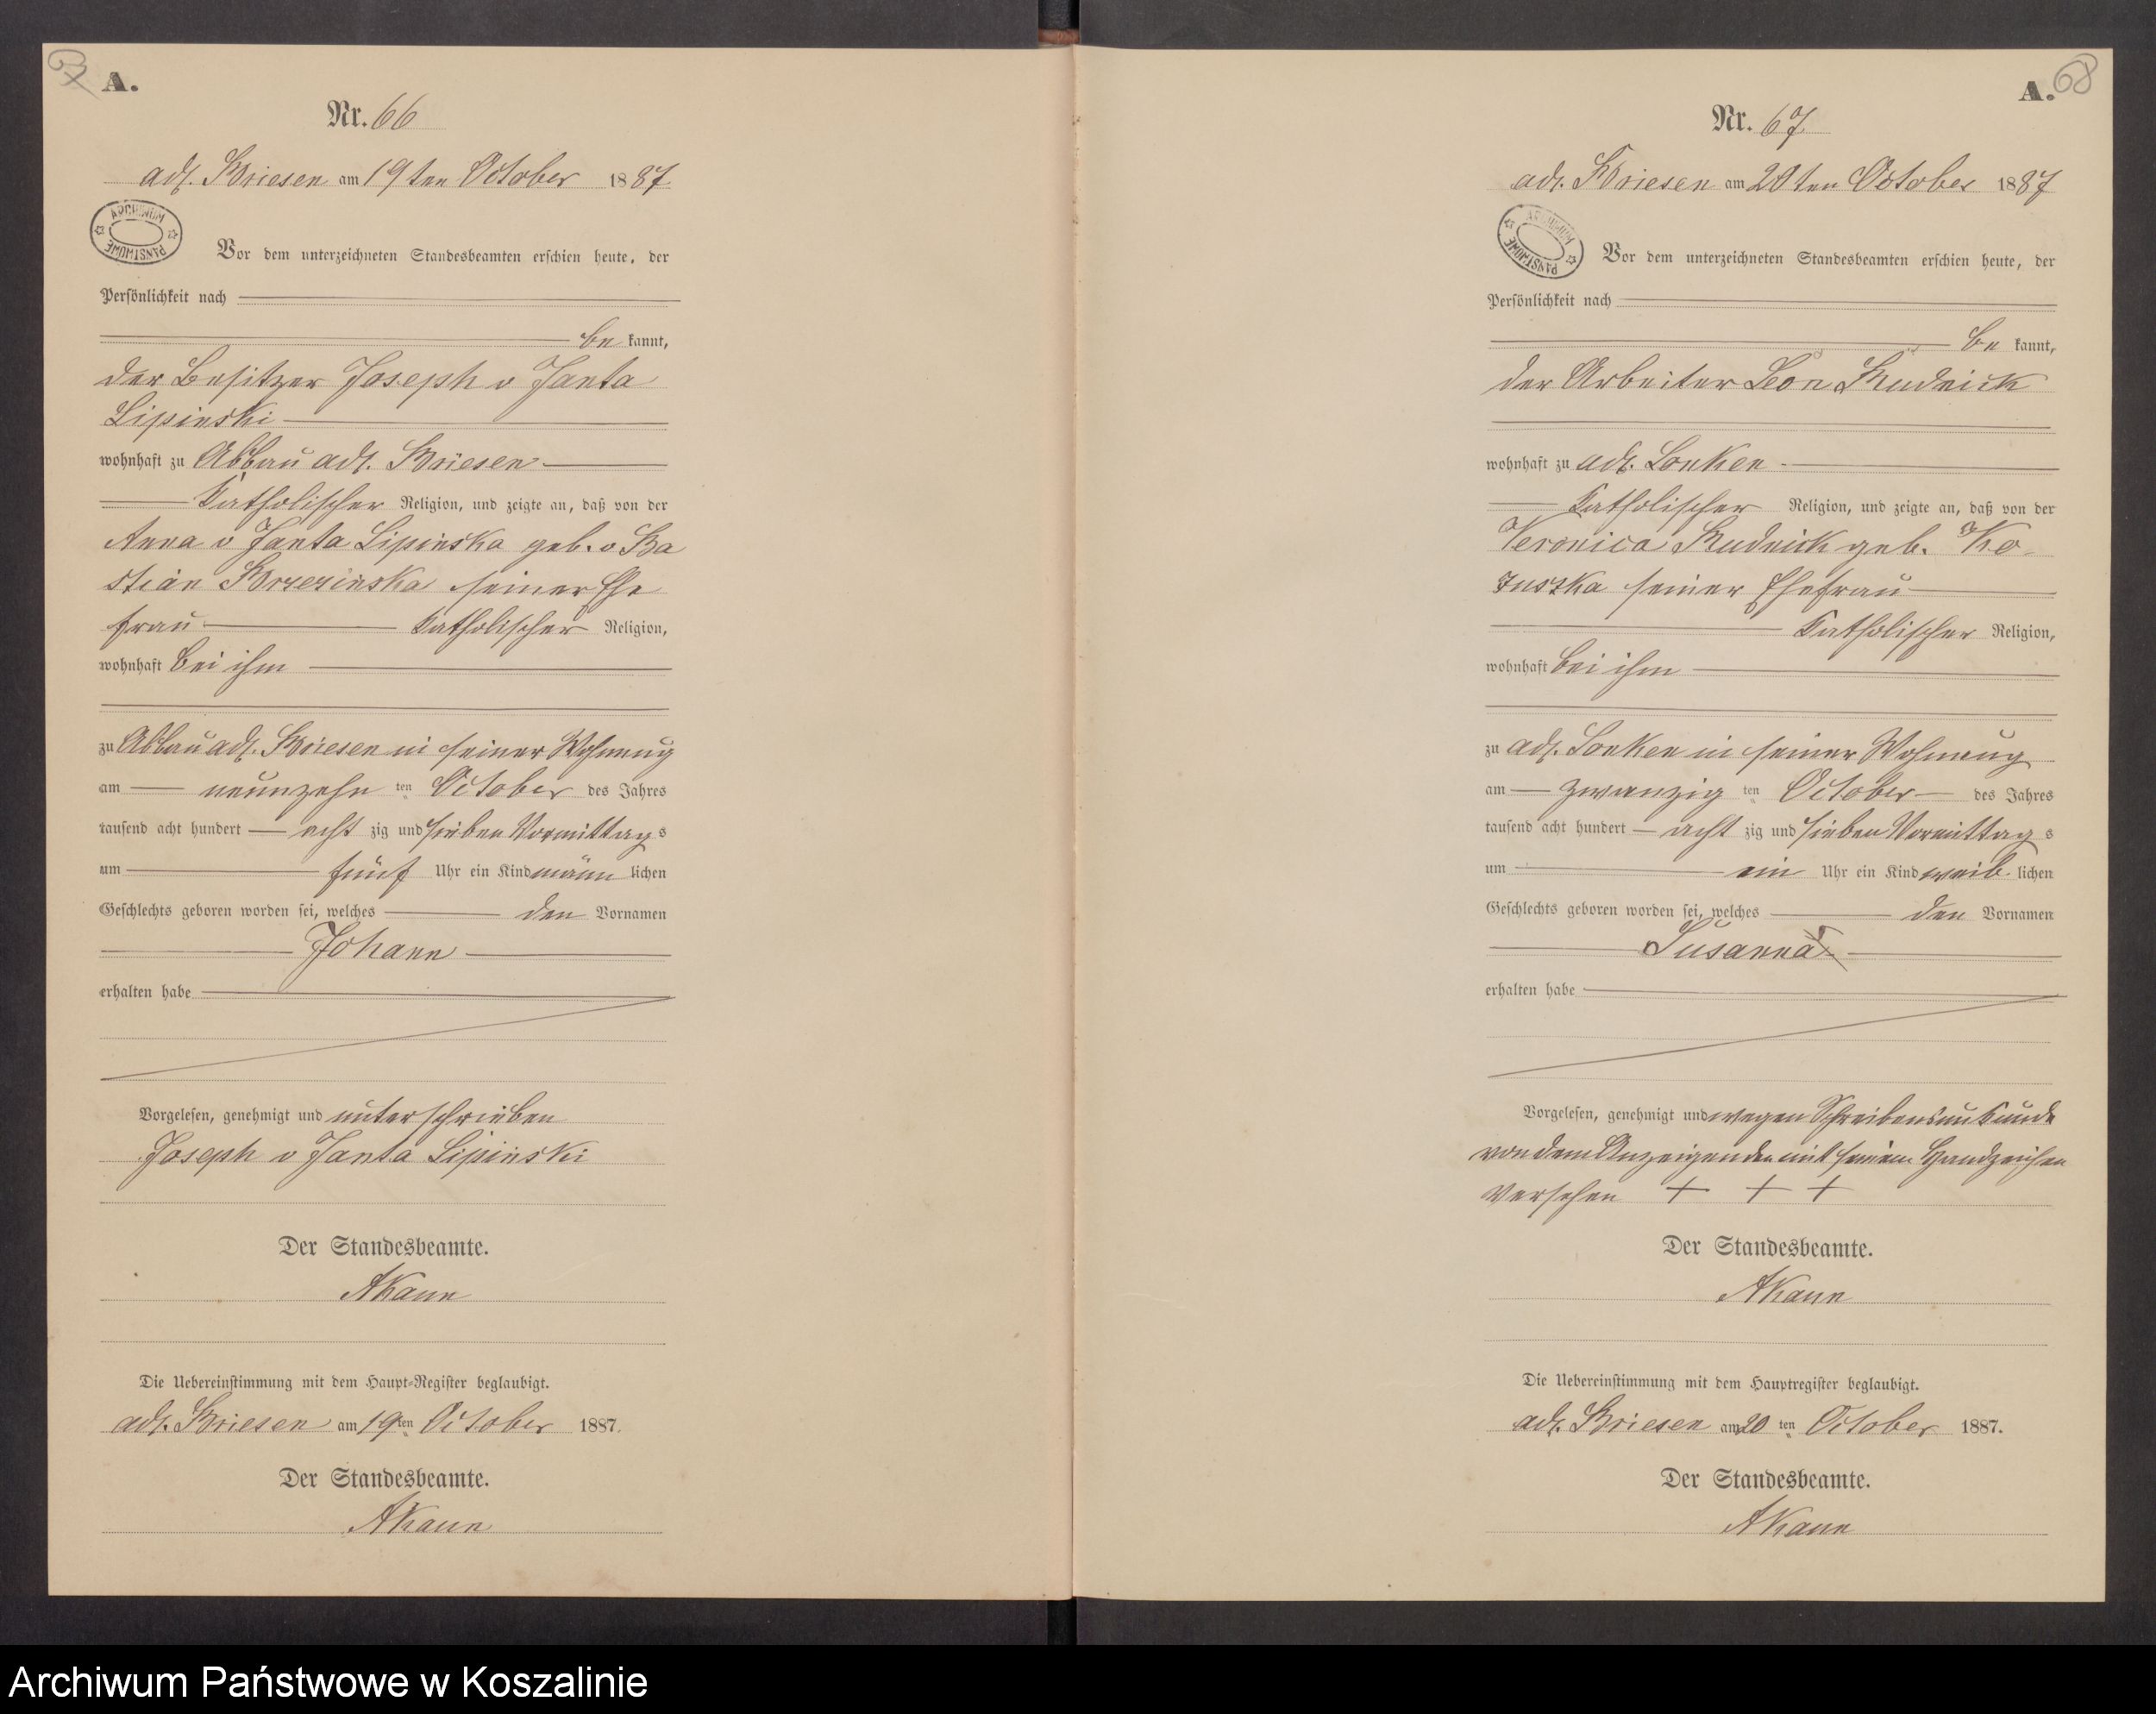 A.
Nr. 66
adl. Briesen am 19ten October 1887
ARCHIWUM PAŃSTWOWE
Vor dem unterzeichneten Standesbeamten erschien heute, der
Persönlichkeit nach
be kannt,
der Besitzer Joseph v Janta
Lipinski
wohnhaft zu Abbau adl. Briesen
Katholischer Religion, und zeigte an, daß von der
Anna v Janta Lipinska geb. v Ba
stian Brzezinska seiner Ehe
frau Katholischer Religion,
wohnhaft bei ihm
zu Abbau adl. Briesen in seiner Wohnung
am neunzehn ten October des Jahres
tausend acht hundert acht zig und sieben Vormittags
um fünf Uhr ein Kind männ lichen
Geschlechts geboren worden sei, welches den Vornamen
Johann
erhalten habe
Vorgelesen, genehmigt und unterschrieben
Joseph v Janta Lipinski
Der Standesbeamte.
AKann
Die Uebereinstimmung mit dem Haupt-Register beglaubigt.
adl. Briesen am 19ten October 1887.
Der Standesbeamte.
AKann
A. 68
Nr. 67
adl. Briesen am 20ten October 1887
ARCHIWUM PAŃSTWOWE
Vor dem unterzeichneten Standesbeamten erschien heute, der
Persönlichkeit nach
be kannt,
der Arbeiter Leon Rudnick
wohnhaft zu adl. Lonken
Katholischer Religion, und zeigte an, daß von der
Veronica Rudnick geb. Ko
zuszka seiner Ehefrau
Katholischer Religion,
wohnhaft bei ihm
zu adl. Lonken in seiner Wohnung
am zwanzig ten October des Jahres
tausend acht hundert acht zig und sieben Vormittags
um ein Uhr ein Kind weib lichen
Geschlechts geboren worden sei, welches den Vornamen
Susanna
erhalten habe
Vorgelesen, genehmigt und wegen Schreibensunkunde
von dem Anzeigenden mit seinem Handzeichen
versehen + + +
Der Standesbeamte.
AKann
Die Uebereinstimmung mit dem Hauptregister beglaubigt.
adl. Briesen am 20 ten October 1887.
Der Standesbeamte.
AKann
Archiwum Państwowe w Koszalinie